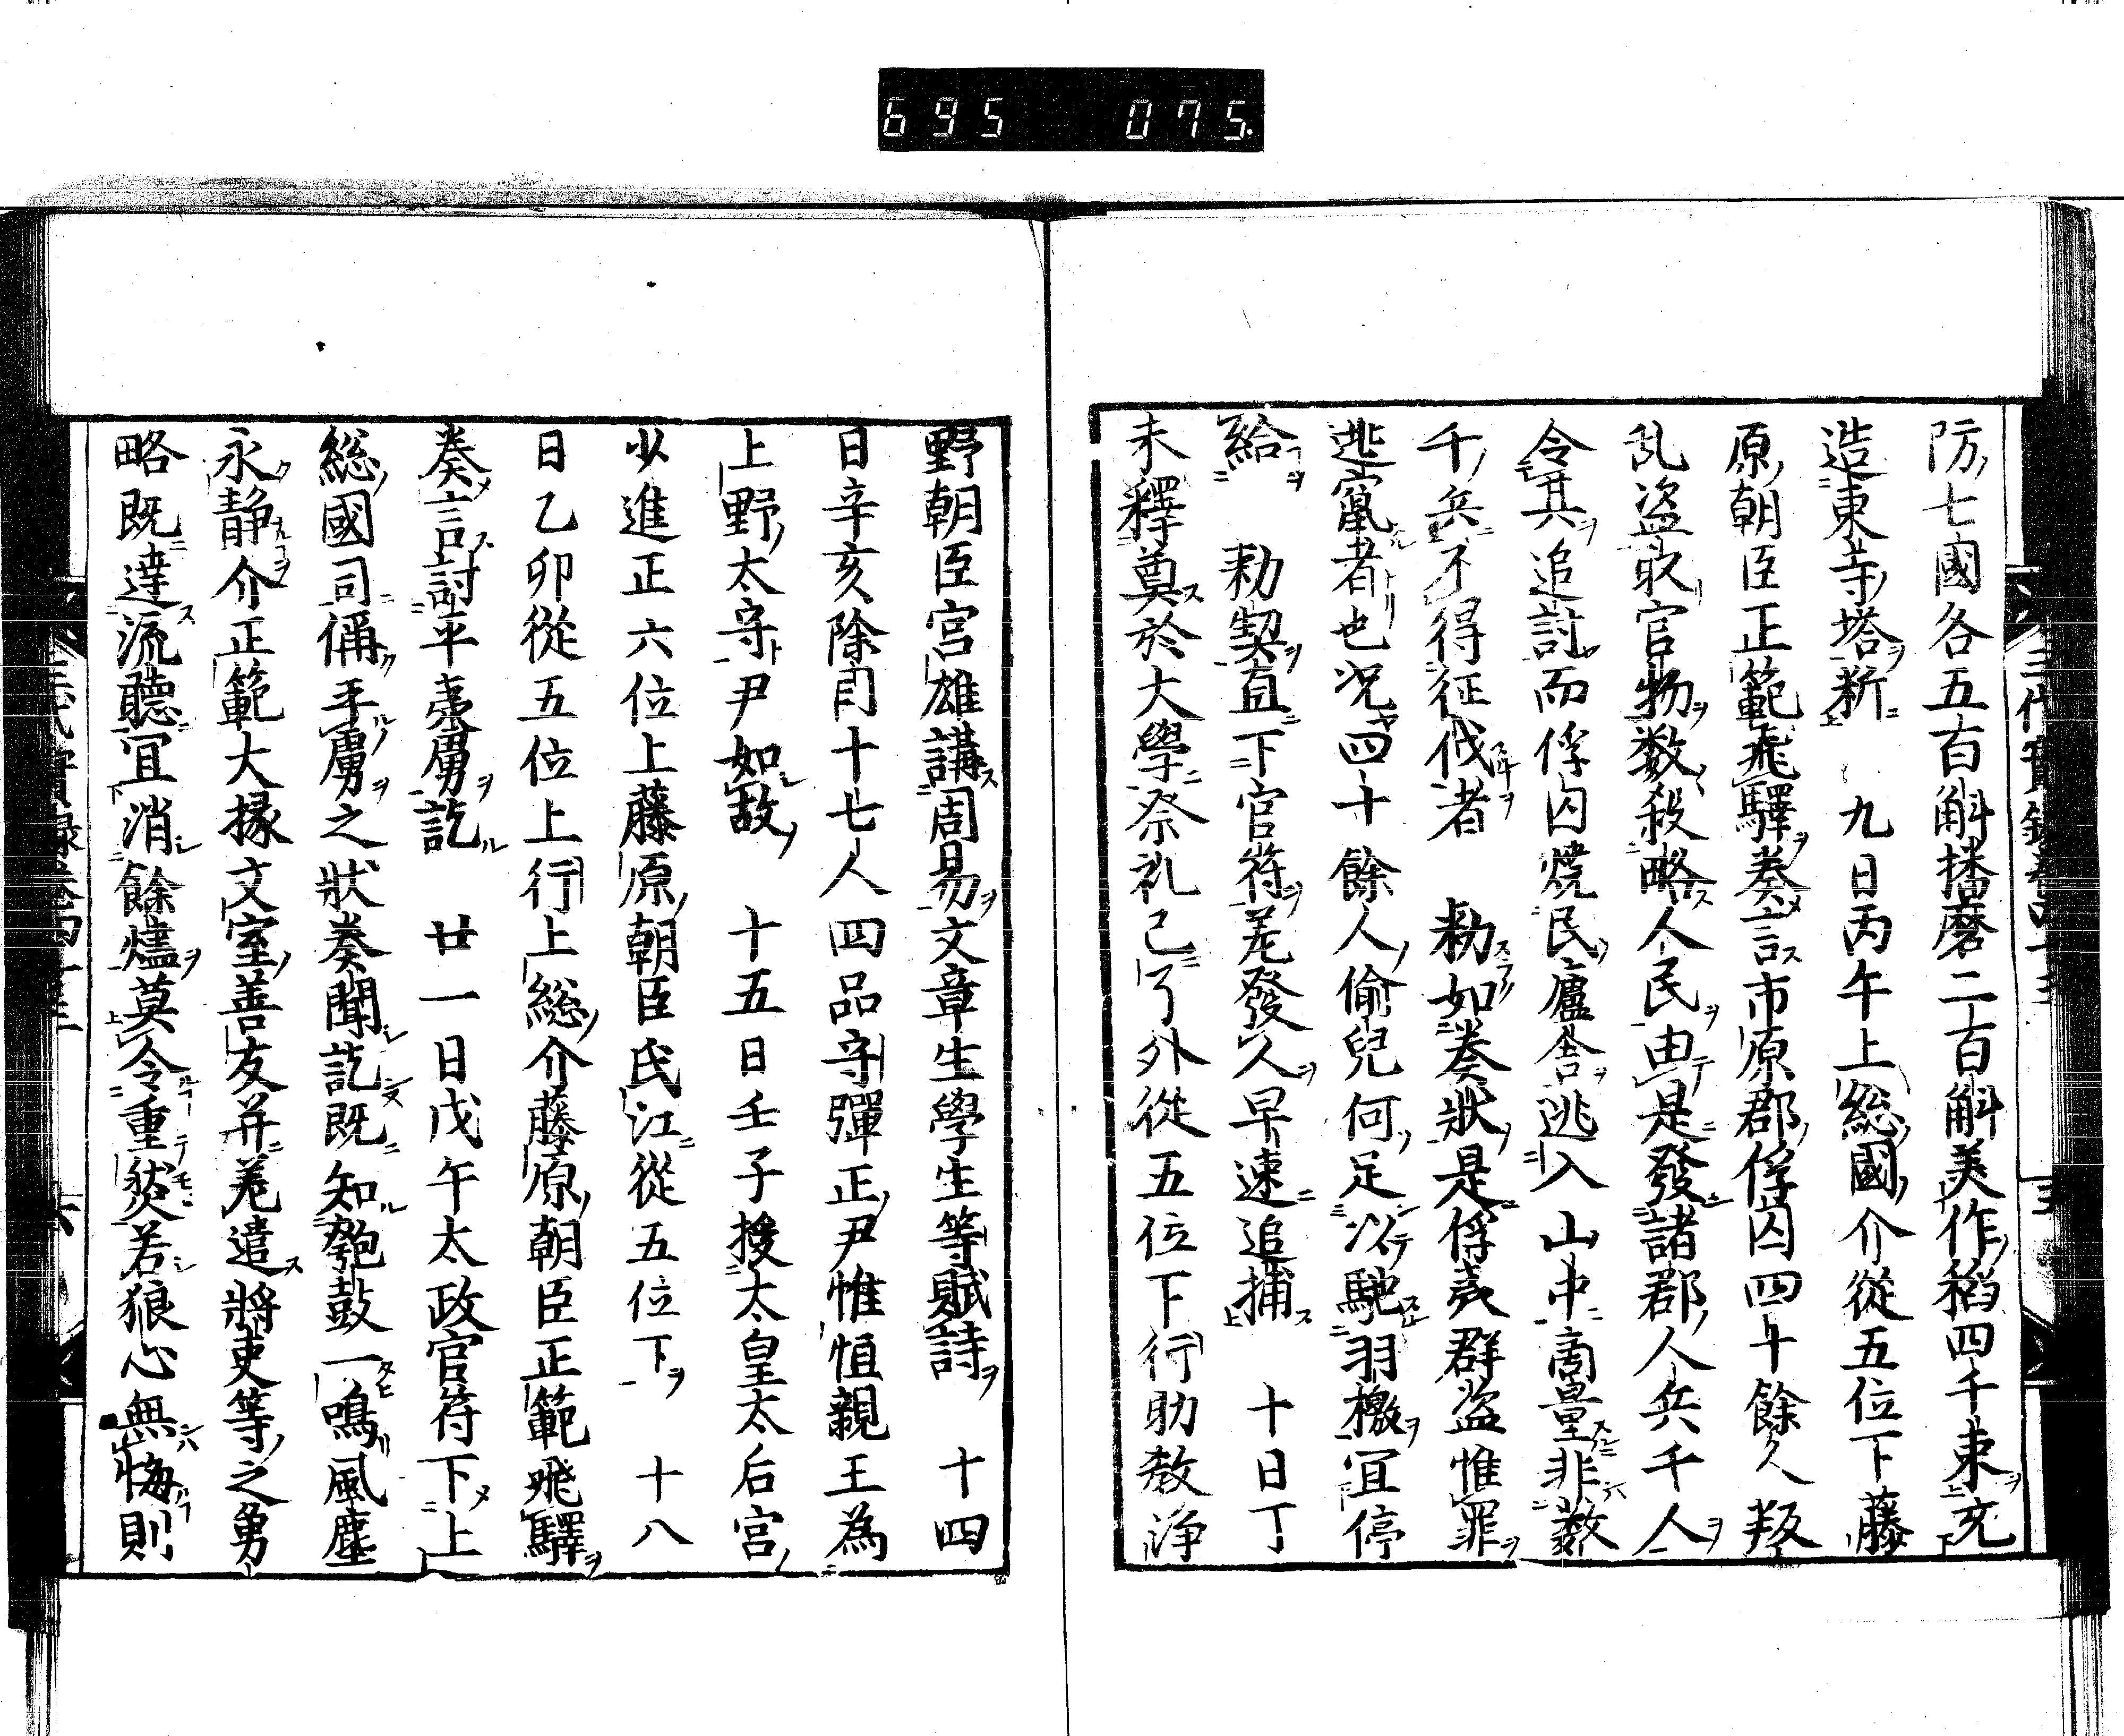 695 075.
防七國各五百斛播磨二百斛美作稻四千束充
造東寺塔新 九日丙午上総國介從五位下藤
原朝臣正範飛驛奏言市原郡俘囚四十餘人叛
乱盗取官物数殺略人民由是發諸郡人兵千人
令其追討而俘囚燒民廬舎逃入山中商量非数
千兵不得征伐者 勅如奏状是俘夷群盗惟罪
逃竄者也况四十餘人偷兒何足以馳羽檄宜停
給 勅契直下官符差發人早速追捕 十日丁
未釋奠於大學祭礼已了外從五位下行助教浄
野朝臣宮雄講周易文章生學生等賦詩 十四
日辛亥除目十七人四品守彈正尹惟恒親王為
上野太守尹如故 十五日壬子授太皇太后宮
少進正六位上藤原朝臣氏江從五位下 十八
日乙卯從五位上行上総介藤原朝臣正範飛驛
奏言討平夷虜訖 廿一日戊午太政官符下上
総國司偁平虜之狀奏聞訖既知匏鼓一鳴風塵
永静介正範大掾文室善友并差遣將吏等之勇
略既達流聽冝消餘燼莫令重燃若狼心無悔則